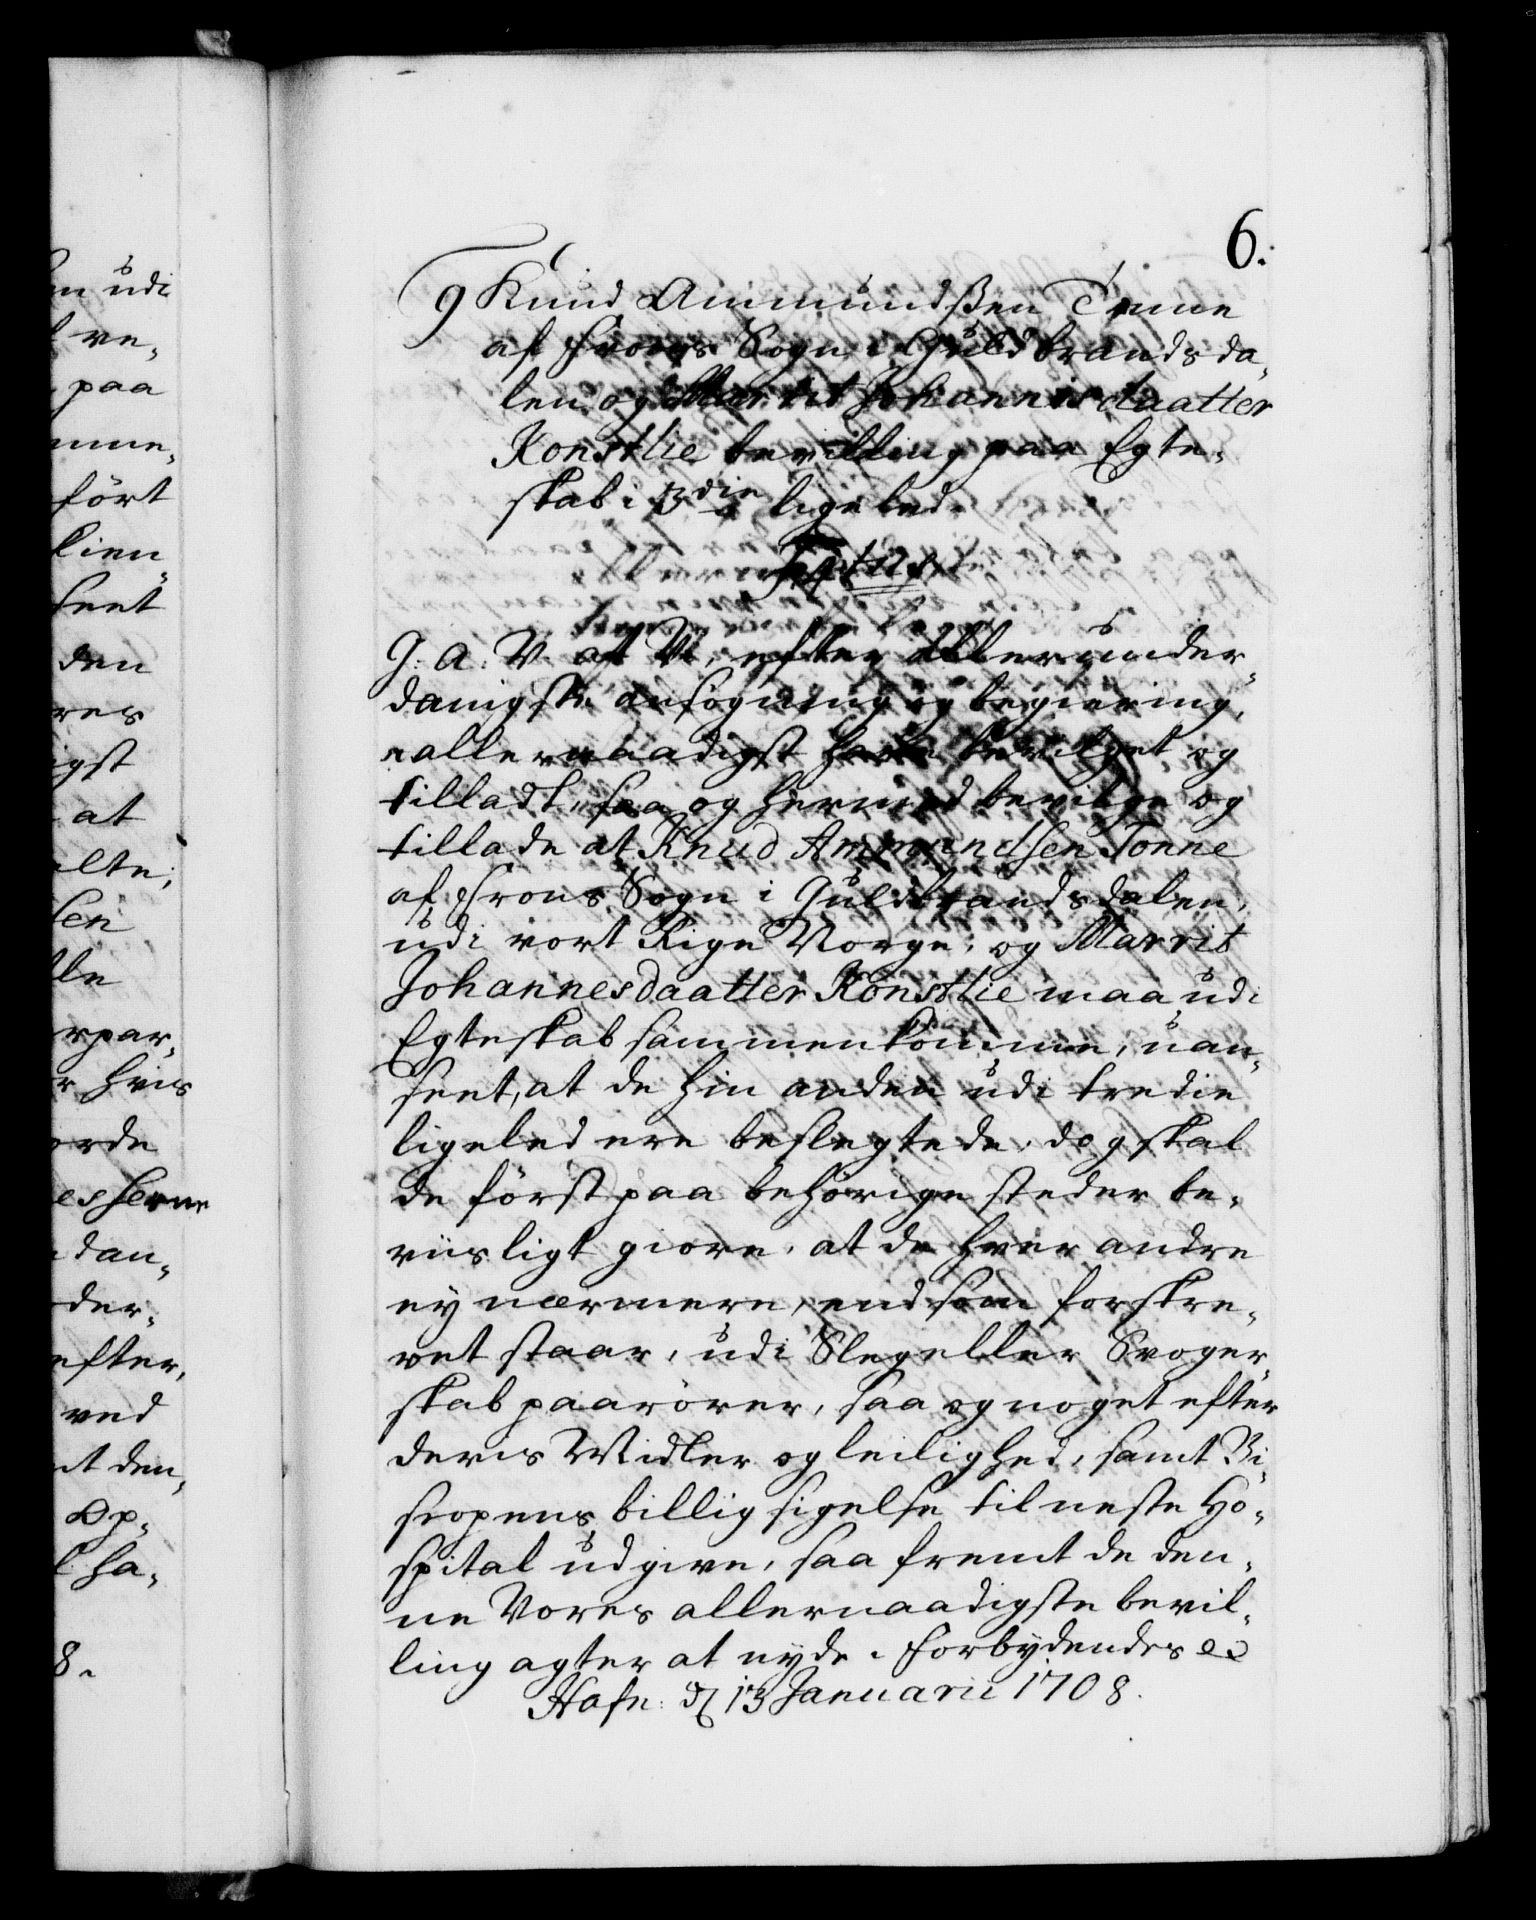 6.
9 Knud Ammundßen Tonne
af Frons Sogn i Guldbrandsda,
len og Marrit Johannisdaatter
Konstlie bevilling paa Egte,
skab i 3die ligeled.
G: A: V. at Vi, efter allerunder,
danigste ansøgning og begiering,
allernaadigst have bevilget og
tilladt, saa og hermed bevilge og
tillade at Knud Ammundsen Tonne
af Frons Sogn i Guldbrandsdalen,
udi vort Rige Norge, og Marrit
Johannesdaatter Konstlie maa udi
Egteskab sammenkomme, uan,
seet, at de hin anden udi tredie
ligeled ere beslegtede, dog skal
de først paa behørige steder be,
viisligt giøre, at de hver andre
ey nærmere, end som forskre,
vet staar, udi Slegt eller Svoger,
skab paarører, saa og noget efter
deris Midler og leilighed, samt Bi,
scopens billig sigelse til neste Ho,
spital udgive, saa fremt de den,
ne Vores allernaadigste bevil,
ling agter at nyde. Forbydendes etc
Hafn: d 13 Januarii 1708.
n udi
ve,
paa
mme,
ført
lien
seet
den
res
igst
at
elte,
sen
le
rpar,
r hvis
orde
dan,
der,
efter,
ved
t den,
Op,
ha,
8.